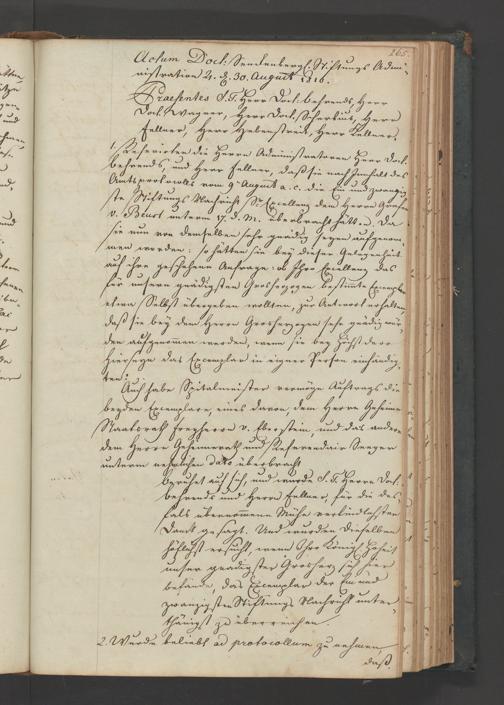 265.
Actum Doct: Senckenberg: Stiftungs Admi-
nistration d. d. 30. August 1810.
Praesentes S. T. Herr Doct. Behrends, Herr
Doct. Wagner, Herr Doct. Scherbius, Herr
Fellner, Herr Hebenstreit, Herr Kellner.
1. Referirten die Herrn Administratoren Herr Doct.
Behrends, und Herr Fellner, daß sie nach Innhalt des
Amtsprotocolls vom 9t August a. c. die Ein und zwanzig-
ste Stiftungs Nachricht Sr. Excellenz dem Herrn Grafen
v. Beust unterm 17. d. M. überbracht hätten. Da
sie nun von demselben sehr gnädig seyen aufgenom-
men worden: so hätten sie bey dieser Gelegenheit
auf ihre geschehene Anfrage: ob Ihro Excellenz das
für unsern gnädigsten Grosherzogen bestimmte Exemplar
etwa Selbst übergeben wollten, zur Antwort erhalten,
daß sie bey dem Herrn Grosherzogen sehr gnädig wür-
den aufgenommen werden, wenn sie bey Höchst dero
Hierseyn das Exemplar in eigner Person einhändig-
ten.
Auch habe Spitalmeister vermöge Auftrags die
beyden Exemplare, eines davon, dem Herrn Geheime
Staatsrath Freyherrn v. Eberstein, und das andere
dem Herrn Geheimrath und Referendair Seeger
unterm dato überbracht
beruhet auf sich, und wurde S. T. Herrn Doct.
Behrends und Herrn Fellner, für die des-
falls übernommene Mühe verbindlichsten
Dank gesagt. Und wurden dieselben
höflichst ersucht, wenn Ihro Königl. Hoheit
unser gnädigster Grosherzog sich hier
befände, das Exemplar der Ein und
zwanzigsten Stiftungs Nachricht unter-
thänigst zu überreichen.
2. Wurde beliebt ad protocollum zu nehmen,
daß